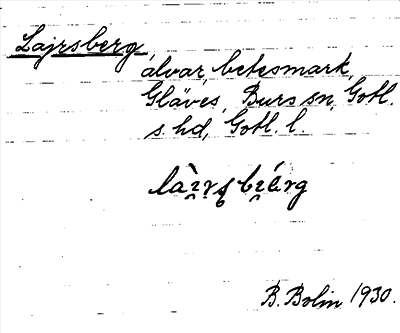 Lajrsberg
álvar, betesmark,
Gläves, Burs sn, Gotl.
s. hd, Gotl. l.
B. Bolin 1930.